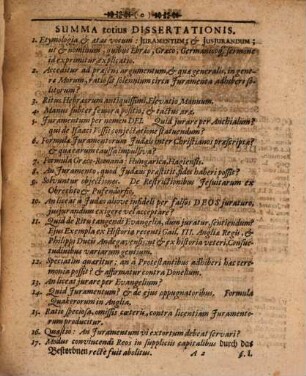 SUMMA totius DISSERTATIONIS.
1. Etymologia & ætas vocum: JURAMENTUM, & JUSJURANDUM;
ut & nominum, quibus Ebræo, Græco, Germanicoq; sermone
id exprimitur, explicatio.
2. Acceditur ad præsens argumentum, & quæ generalis, in genere
Morum, ratio sit solennium circa Juramenta adhiberi so-
litorum?
3. Ritus Hebræorum antiquissimi. Elevatio Manuum.
4. Manus subter femora positio, & tactus aræ.
5. Juramentum per nomen DEI. Quid jurare per Anchialum?
qui de Isaaci Vossii conjectatione statuendum?
6. Formula Juramentorum Judæis inter Christianos præscripta?
& quatenus causa improbus?
7. Formula Græco-Romana: Hungarica, Hagiensis.
8. An Juramento, quod Judæus præstitit, fides haberi possit?
9. Solvuntur objectiones. De Restrictionibus Jesuitarum ex
Obrechto & Pufendorfio.
10. An liceat a Judæo alióve infideli per falsos DEOS jurature,
jusjurandum exigere vel acceptare?
11. Quid de Ritu tangendi Evangelia, dum juratur, sentiendum?
Ejus Exempla ex Historia recenti Gail. III. Angliæ Regis, &
Philippi Ducis Andegavensis: ut & ex historia veteri. Consue-
tudinibus variarum gentium.
12. Speciatim quæritur: an a Protestantibus adhiberi hæc cere-
monia possit? & affirmatur contra Donellum.
13. An liceat jurare per Evangelium?
14. Quid Juramentum? & de ejus oppugnatoribus. Formula
Quakerorum in Anglia.
15. Ratio speciosa, omissis cæteris, contra licentiam Juramento-
rum producitur.
16. Quæstio: An Juramentum vi extortum debeat servari?
17. Modus convincendi Reos in suppliciis capitalibus durch das
Besiebnen recte fuit abolitus. A 2 §. 1.